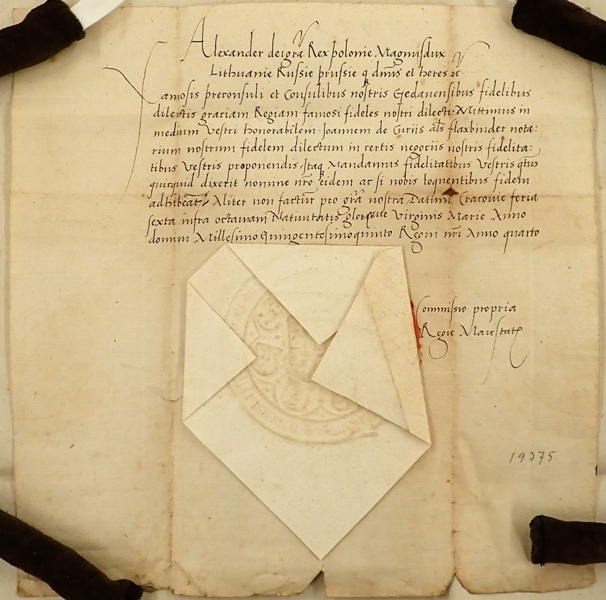 Alexander dei gra Rex polonie Magnus dux
Lithuanie Russie prussie q dnus et heres zc
Famosis preconsuli et Consulibus nostris Gedanensibus fidelibus
dilectis graciam Regiam famosi fideles nostri dilecti Mittimus in
medium Vestri honorabilem Joannem de Curiis als flaxbinder nota:
rium nostrum fidelem dilectum in certis negociis nostris fidelita:
tibus Vestris proponendis Itaq Mandamus fidelitatibus Vestris qtus
quicquid dixerit nomine nro eidem ac si nobis loquentibus fidem
adhibeat Aliter non facturi pro gra nostra Datum Cracovie feria
sexta infra octavam Nativitatis gloriose Virginis Marie Anno
domini Millesimo Quingentesimoquinto Regni nri Anno quarto
Commissio propria
Regie Maiestatis
19375